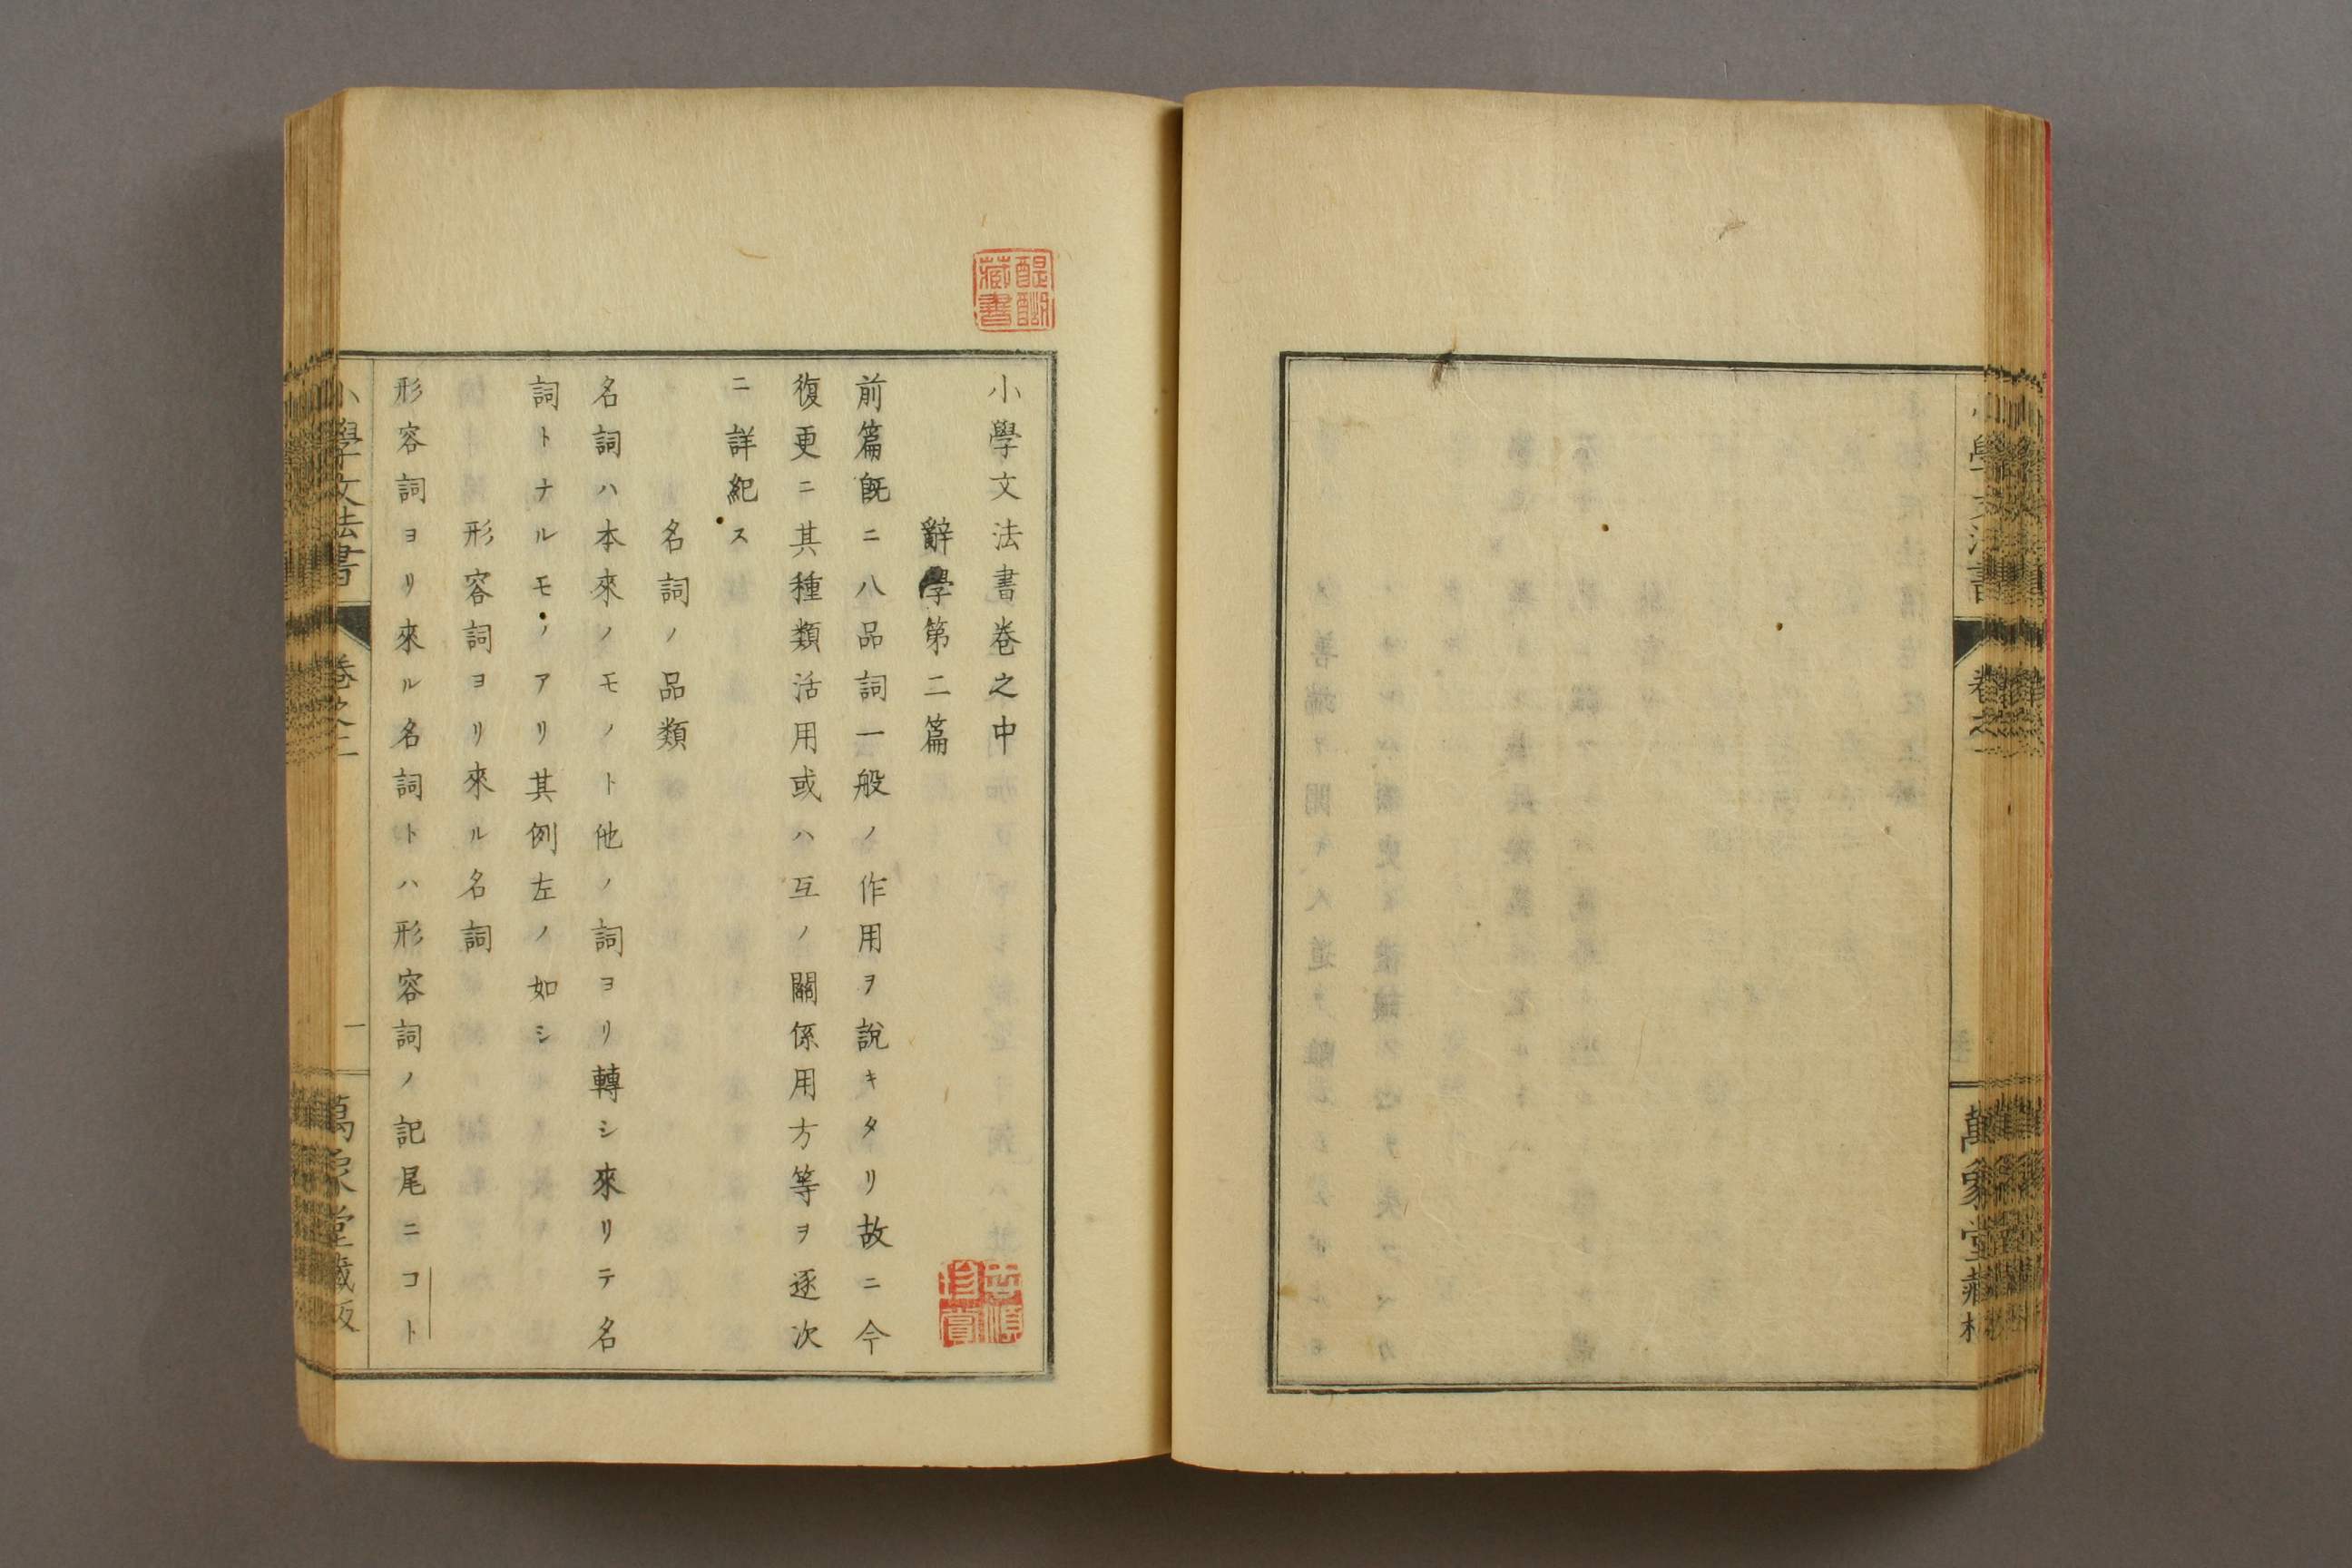 小學文法書
萬象堂藏
小學文法書卷之中
辭學第二篇
前篇旣ニ八品詞一般ノ作用ヲ說キタリ故ニ今
復更ニ其種類活用或ハ互ノ關係用方等ヲ逐次
ニ詳紀ス
名詞ノ品類
名詞ハ本來ノモノト他ノ詞ヨリ轉シ來リテ名
詞トナルモノアリ其例左ノ如シ
形容詞ヨリ來ル名詞
形容詞ヨリ來ル名詞トハ形容詞ノ記尾ニコト
小學文法書
一
萬象堂藏版
醍醐藏書
珍賞